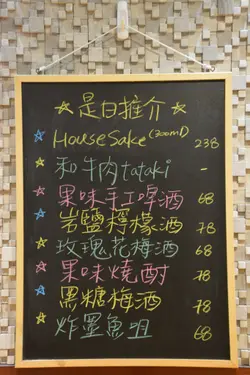 ☆是日推介☆
☆ House Sake (300ml) 238
☆ 和牛肉tataki -
☆ 果味手工啤酒 68
☆ 岩鹽檸檬酒 78
☆ 玫瑰花梅酒 68
☆ 果味燒酎 78
☆ 黑糖梅酒 78
☆ 炸墨魚咀 68